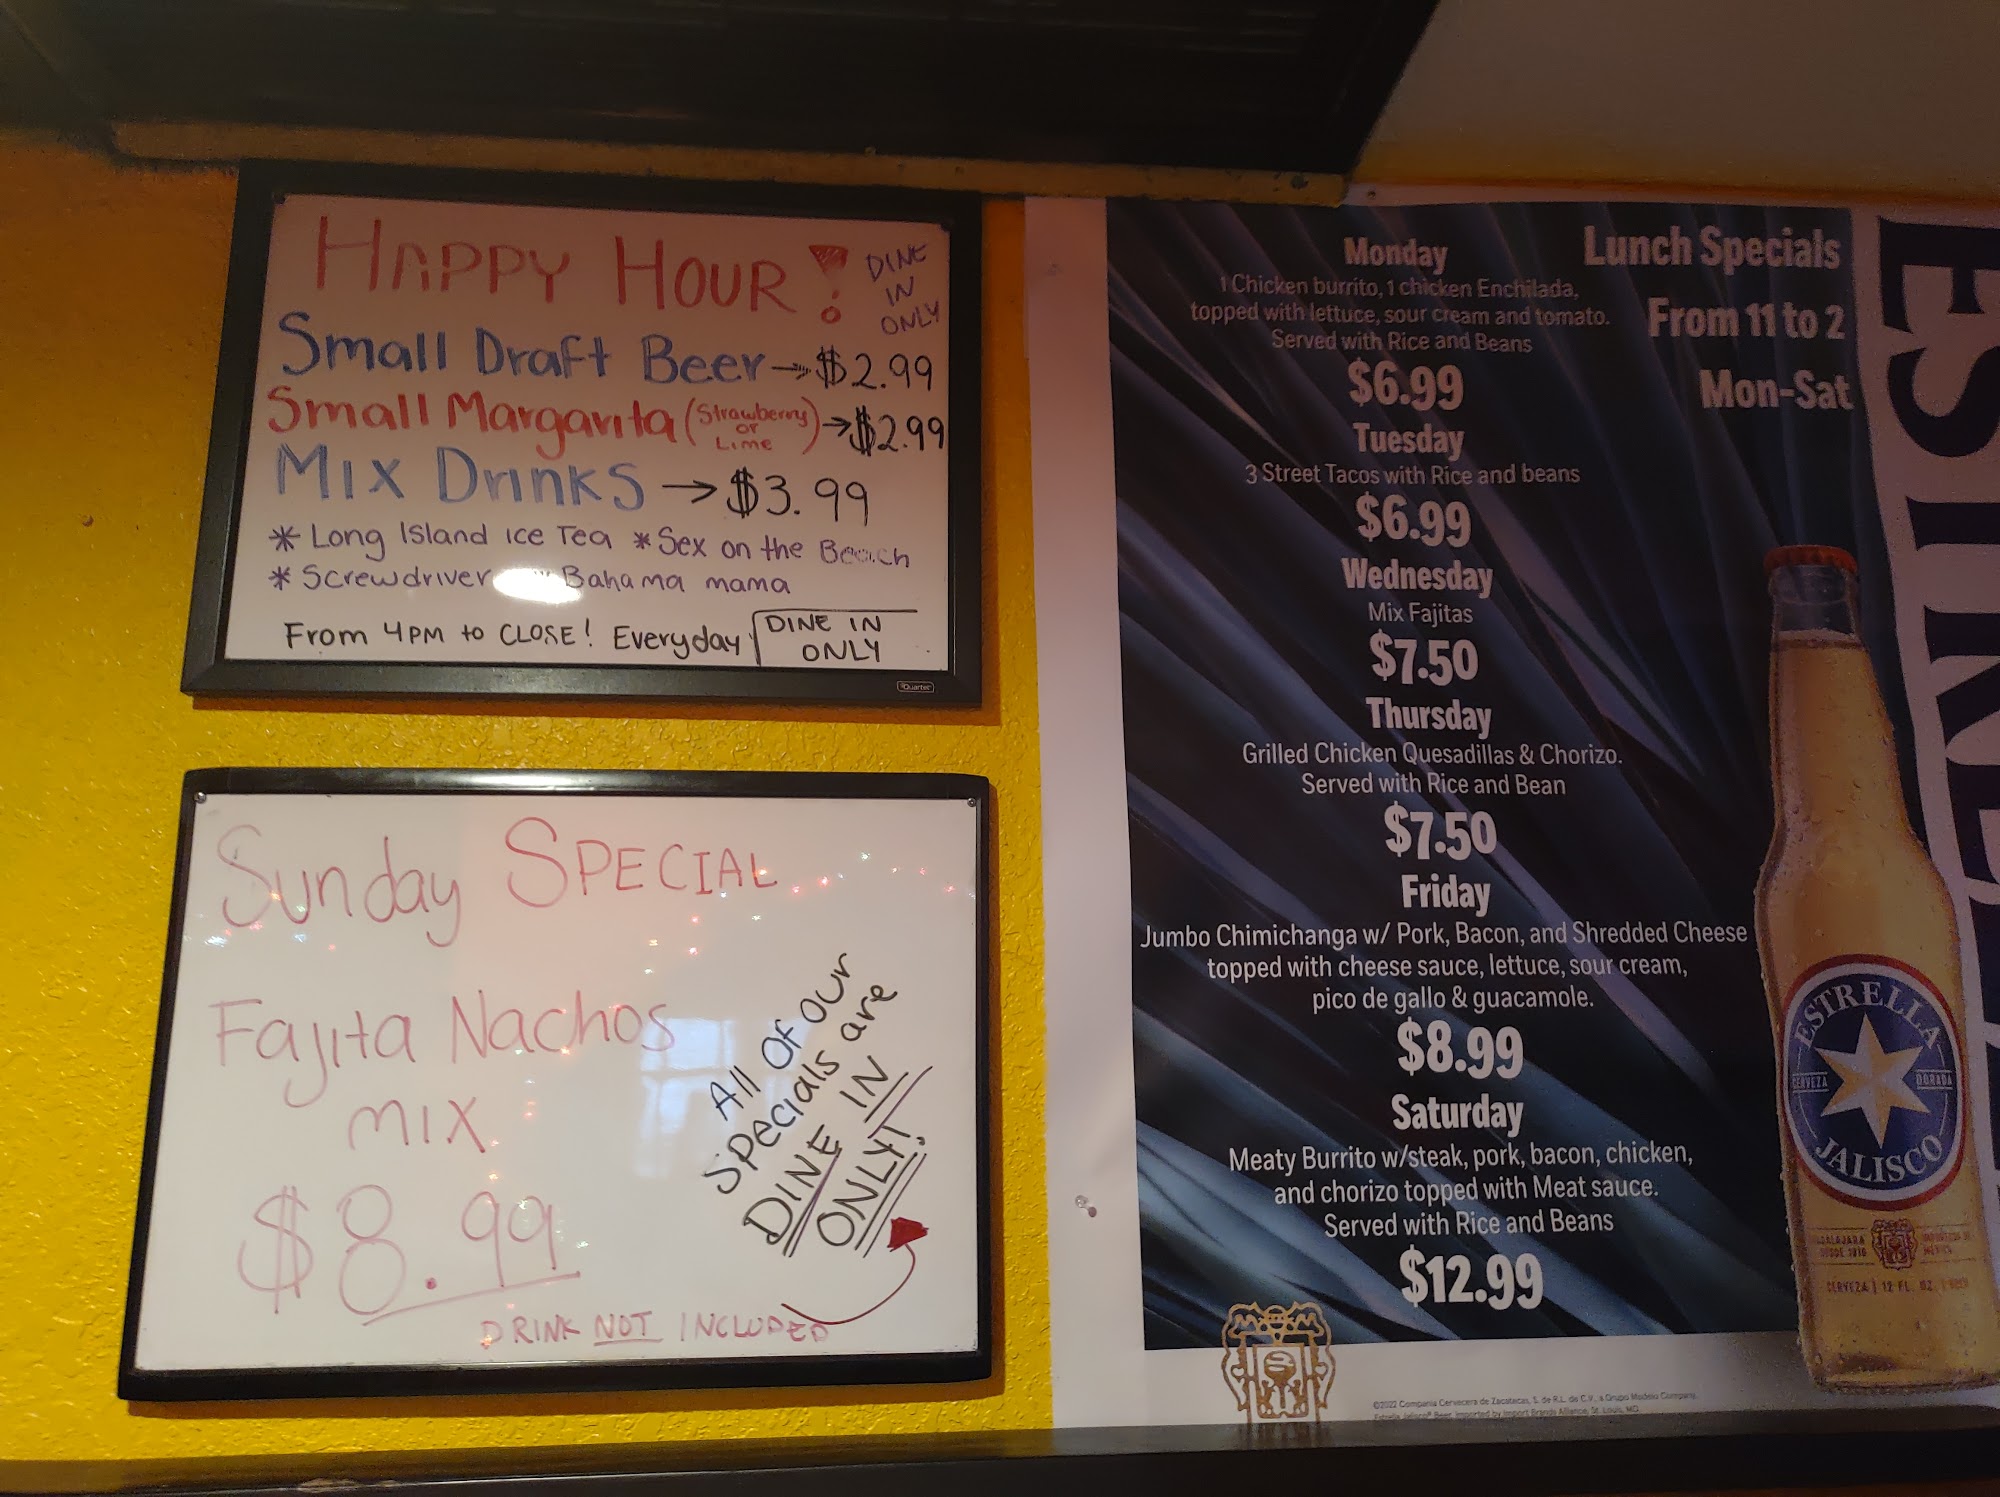 HAPPY HOUR!
DINE
IN
ONLY
Small Draft Beer → $2.99
Small Margarita (Strawberry or Lime) → $2.99
Mix Drinks → $3.99
* Long Island ice Tea * Sex on the Beach
* Screwdriver Bahama mama
From 4PM to CLOSE! Everyday
DINE IN
ONLY
Quartet
Sunday SPECIAL
Fajita Nachos
MIX
$8.99
All Of Our
Specials are
DINE IN
ONLY!
DRINK NOT INCLUDED
Lunch Specials
From 11 to 2
Mon-Sat
Monday
1 Chicken burrito, 1 chicken Enchilada,
topped with lettuce, sour cream and tomato.
Served with Rice and Beans
$6.99
Tuesday
3 Street Tacos with Rice and beans
$6.99
Wednesday
Mix Fajitas
$7.50
Thursday
Grilled Chicken Quesadillas & Chorizo.
Served with Rice and Bean
$7.50
Friday
Jumbo Chimichanga w/ Pork, Bacon, and Shredded Cheese
topped with cheese sauce, lettuce, sour cream,
pico de gallo & guacamole.
$8.99
Saturday
Meaty Burrito w/steak, pork, bacon, chicken,
and chorizo topped with Meat sauce.
Served with Rice and Beans
$12.99
ESTRELLA
CERVEZA DORADA
JALISCO
CERVEZA 12 FL. OZ.
©2022 Compania Cervecera de Zacatecas, S. de R.L. de C.V., a Grupo Modelo Company.
Estrella Jalisco® Beer Imported by Import Brands Alliance, St. Louis, MO.